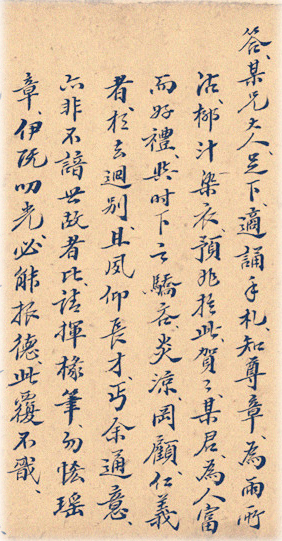 答某兄大人足下適誦手札知尊章為雨所
沾柳汁染衣預兆於此賀々某君為人富
而好禮與時下之驕吝炎涼罔顧仁義
者相去迴別且夙仰長才丐余通意
亦非不諳世故者比請揮椽筆勿惜瑤
章伊既叨光必能報德此覆不戩